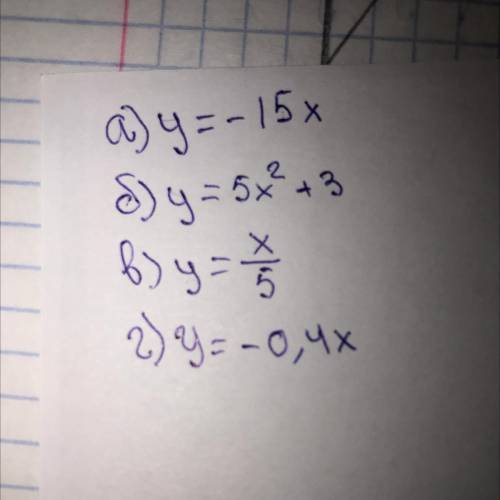 а) y = -15x
б) y = 5x² + 3
в) y = x/5
г) y = -0,4x